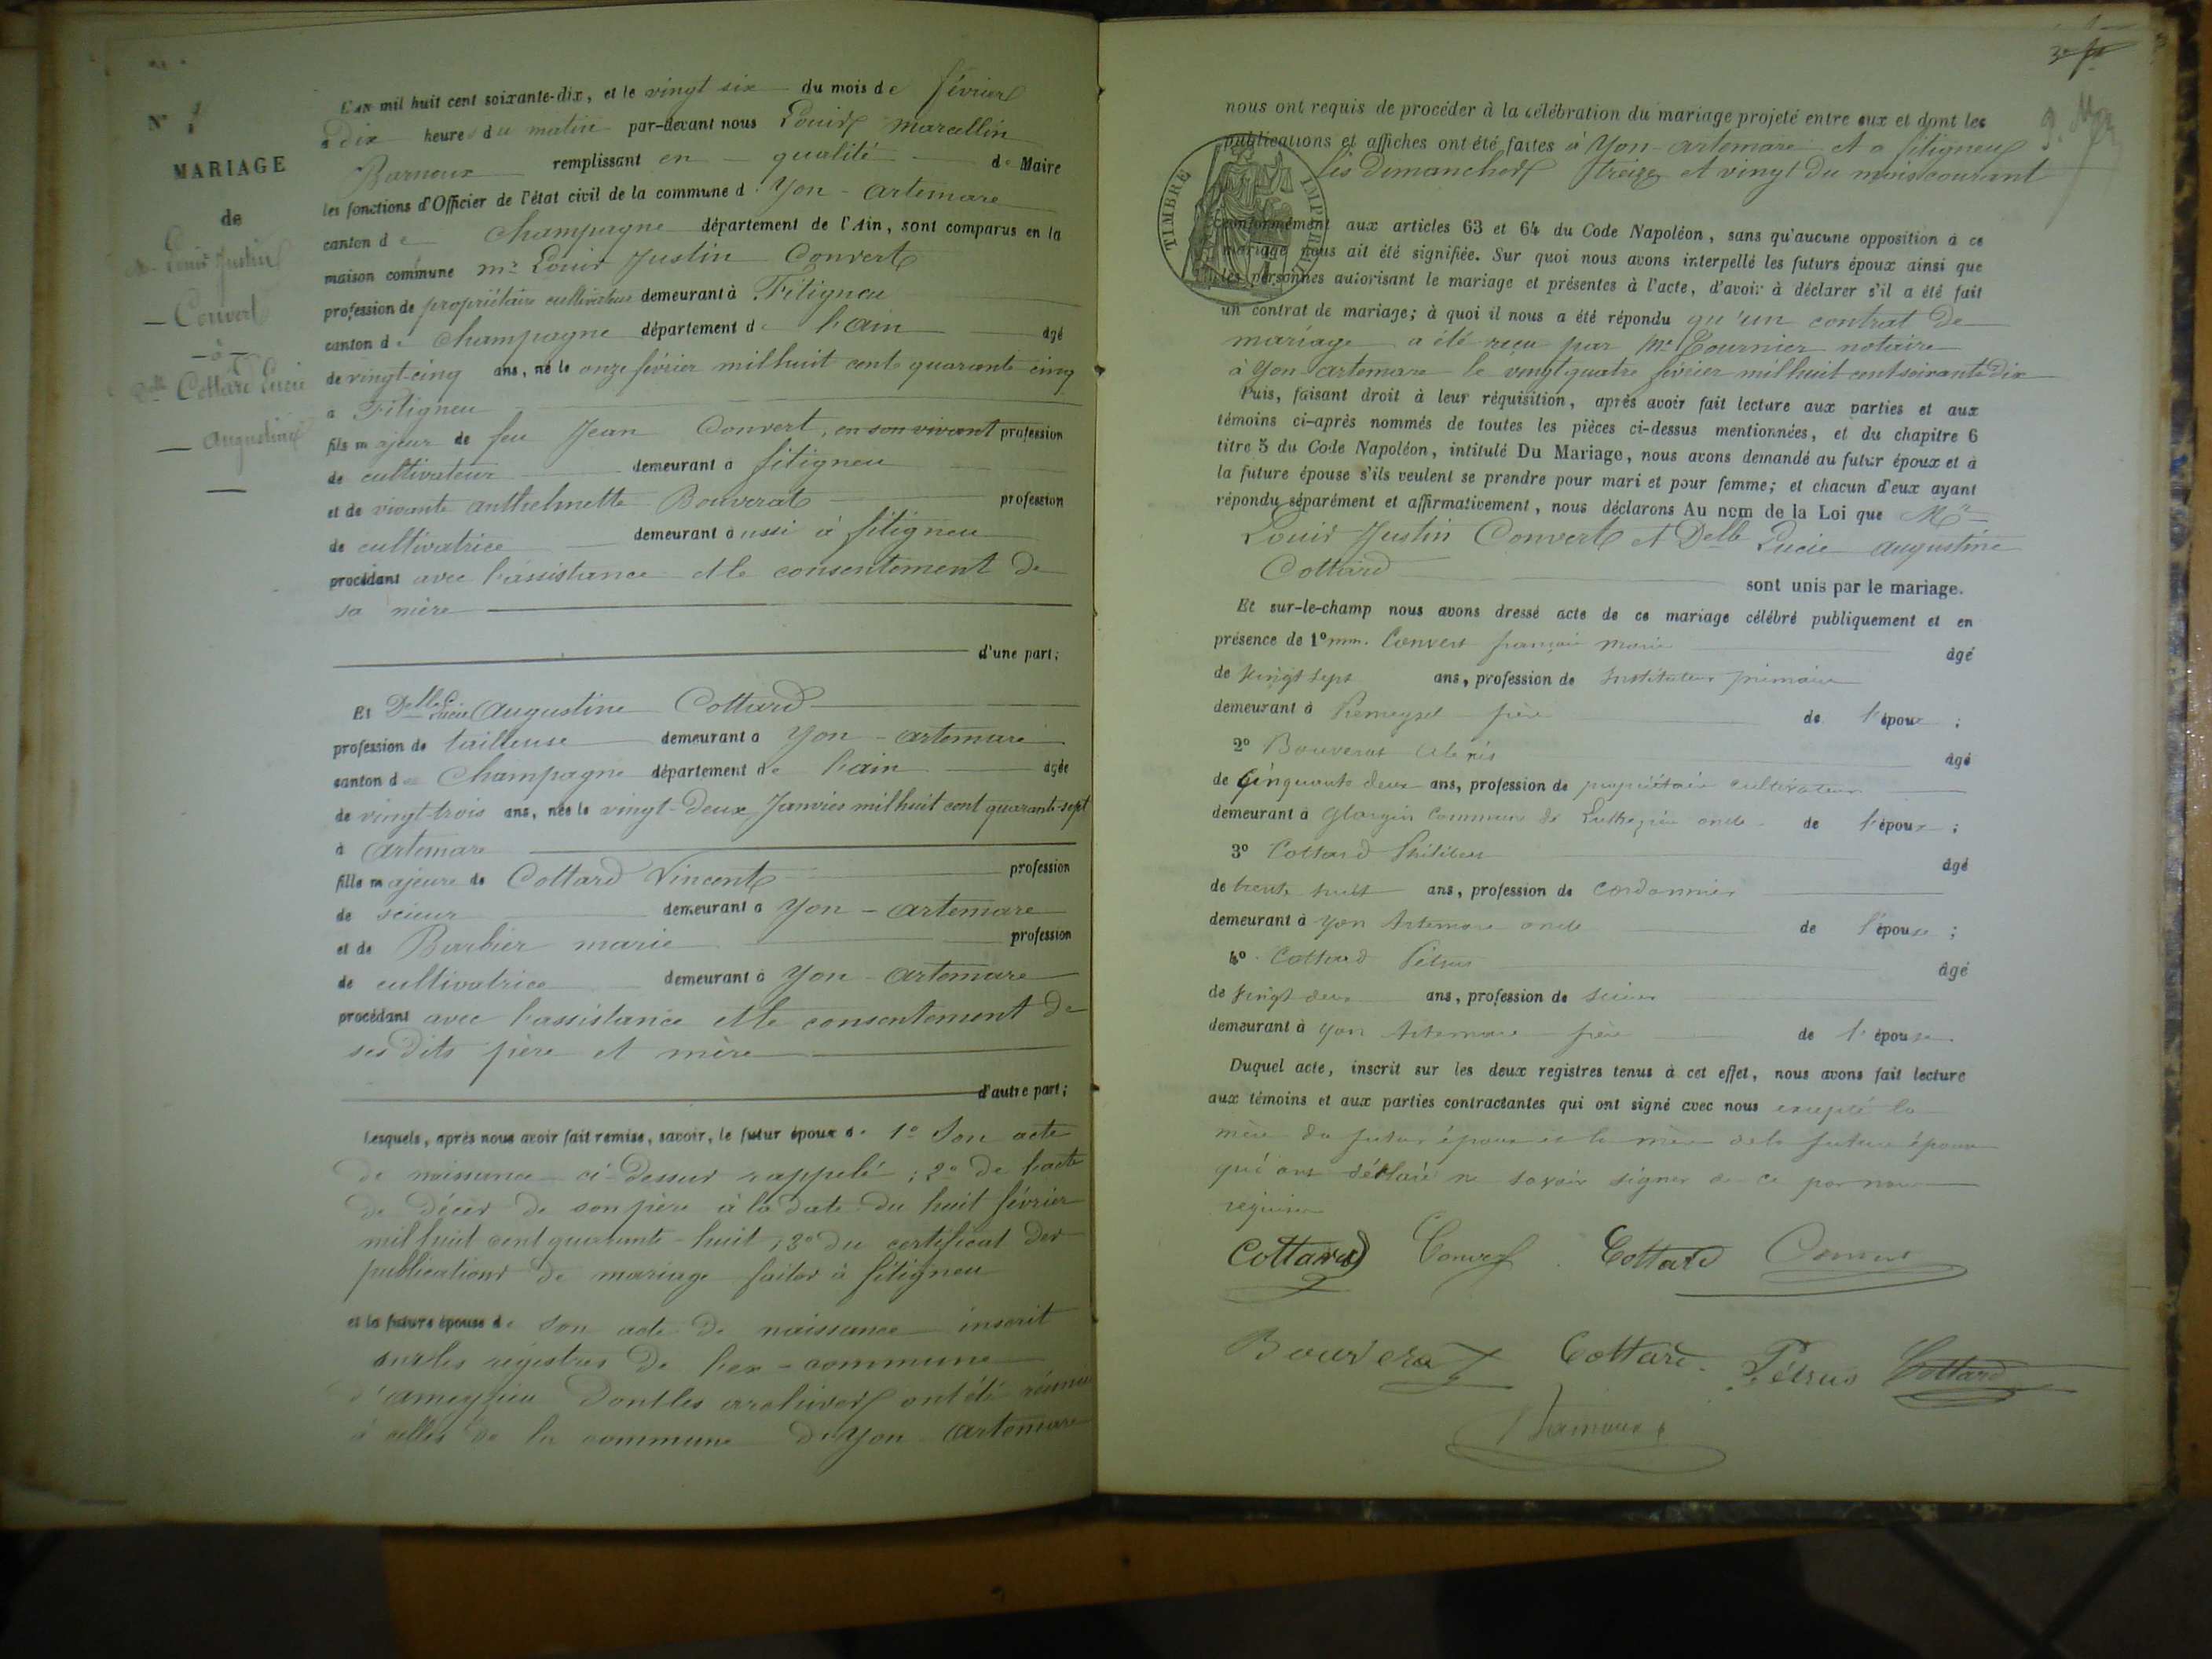 N° 1
MARIAGE
de
Mr Louis Justin
Convert
à
Delle Cottard Lucie
Augustine
L'an mil huit cent soixante-dix, et le vingt six du mois de février
à dix heures du matin par-devant nous Louis Marcellin
Barnoux remplissant en qualité de Maire
les fonctions d'Officier de l'état civil de la commune d' Yon-Artemare
canton de Champagne département de l'Ain, sont comparus en la
maison commune Mr Louis Justin Convert
profession de propriétaire cultivateur demeurant à Fitigneu
canton de Champagne département de l'ain âgé
de vingt-cinq ans, né le onze février mil huit cent quarante cinq
à Fitigneu
fils majeur de feu Jean Convert, en son vivant profession
de cultivateur demeurant à fitigneu
et de vivante anthelmette Bouverat profession
de cultivatrice demeurant aussi à fitigneu
procédant avec l'assistance et le consentement de
sa mère
d'une part;
Et Delle Lucie Augustine Cottard
profession de tailleuse demeurant à Yon-Artemare
canton de Champagne département de l'ain âgée
de vingt-trois ans, née le vingt-deux Janvier mil huit cent quarante-sept
à Artemare
fille majeure de Cottard Vincent profession
de scieur demeurant à Yon-Artemare
et de Barbier marie profession
de cultivatrice demeurant à Yon-Artemare
procédant avec l'assistance et le consentement de
ses dits père et mère
d'autre part;
Lesquels, après nous avoir fait remise, savoir, le futur époux de 1° Son acte
de naissance ci-dessus rappelé; 2° de l'acte
de décès de son père à la date du huit février
mil huit cent quarante-huit; 3° du certificat des
publications de mariage faites à fitigneu
et la future épouse de son acte de naissance inscrit
sur les registres de l'ex-commune
d'ameyzieu dont les archives ont été réunies
à celles de la commune d'Yon Artemare
nous ont requis de procéder à la célébration du mariage projeté entre eux et dont les
publications et affiches ont été faites à Yon-Artemare et à fitigneu
les dimanches treize et vingt du mois courant
TIMBRE IMPÉRIAL
conformément aux articles 63 et 64 du Code Napoléon, sans qu'aucune opposition à ce
mariage nous ait été signifiée. Sur quoi nous avons interpellé les futurs époux ainsi que
les personnes autorisant le mariage et présentes à l'acte, d'avoir à déclarer s'il a été fait
un contrat de mariage; à quoi il nous a été répondu qu'un contrat de
mariage a été reçu par Me Tournier notaire
à Yon Artemare le vingt quatre février mil huit cent soixante dix
Puis, faisant droit à leur réquisition, après avoir fait lecture aux parties et aux
témoins ci-après nommés de toutes les pièces ci-dessus mentionnées, et du chapitre 6
titre 5 du Code Napoléon, intitulé Du Mariage, nous avons demandé au futur époux et à
la future épouse s'ils veulent se prendre pour mari et pour femme; et chacun d'eux ayant
répondu séparément et affirmativement, nous déclarons Au nom de la Loi que Mr
Louis Justin Convert et Delle Lucie Augustine
Cottard sont unis par le mariage.
Et sur-le-champ nous avons dressé acte de ce mariage célébré publiquement et en
présence de 1° mm. Convert françois Marie âgé
de vingt sept ans, profession de Instituteur primaire
demeurant à frère de l'époux;
2° Bouverat Alexis âgé
de Cinquante deux ans, profession de propriétaire cultivateur
demeurant à Commune de oncle de l'époux;
3° Cottard Philibert âgé
de trente huit ans, profession de cordonnier
demeurant à Yon Artemare oncle de l'épouse;
4° Cottard Pétrus âgé
de vingt deux ans, profession de scieur
demeurant à Yon Artemare frère de l'épouse.
Duquel acte, inscrit sur les deux registres tenus à cet effet, nous avons fait lecture
aux témoins et aux parties contractantes qui ont signé avec nous excepté la
mère du futur époux et la mère de la future épouse
qui ont déclaré ne savoir signer de ce par nous
requises
Cottard Convert Cottard Convert
Bouverat Cottard Pétrus Cottard
Barnoux